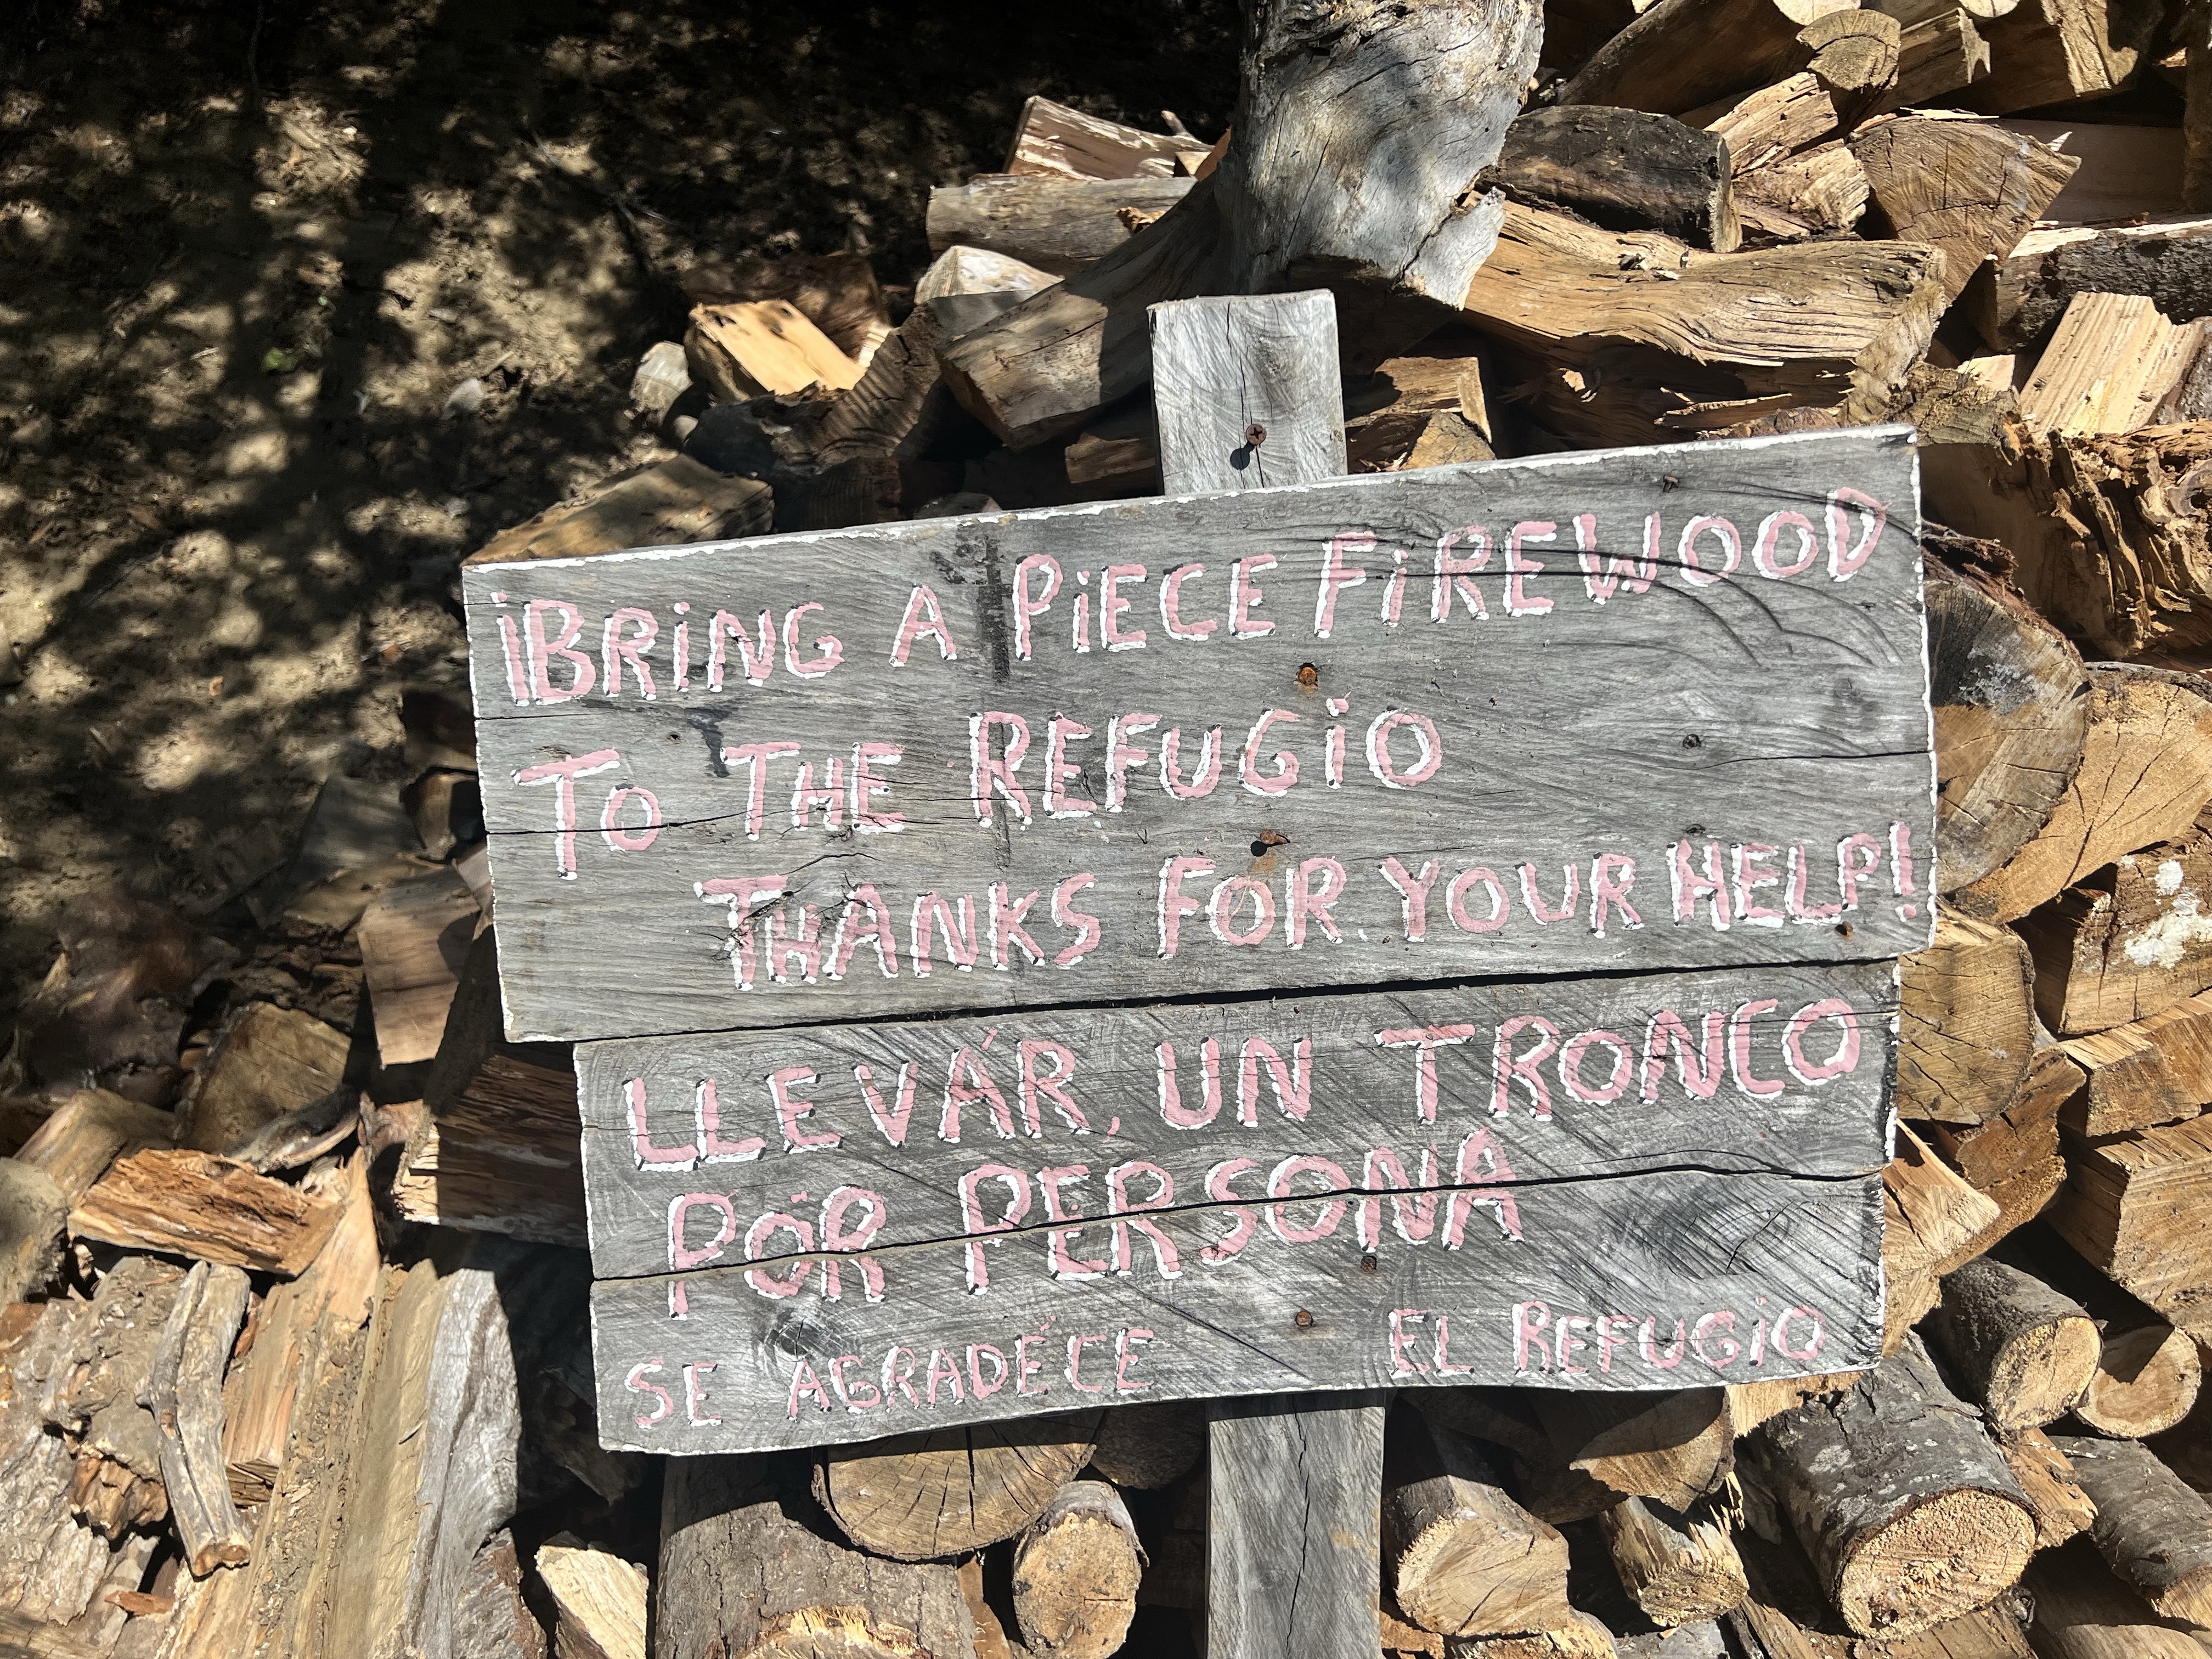 ¡BRING A PIECE FIREWOOD
TO THE REFUGIO
THANKS FOR YOUR HELP!
LLEVÁR, UN TRONCO
POR PERSONA
SE AGRADÉCE EL REFUGIO